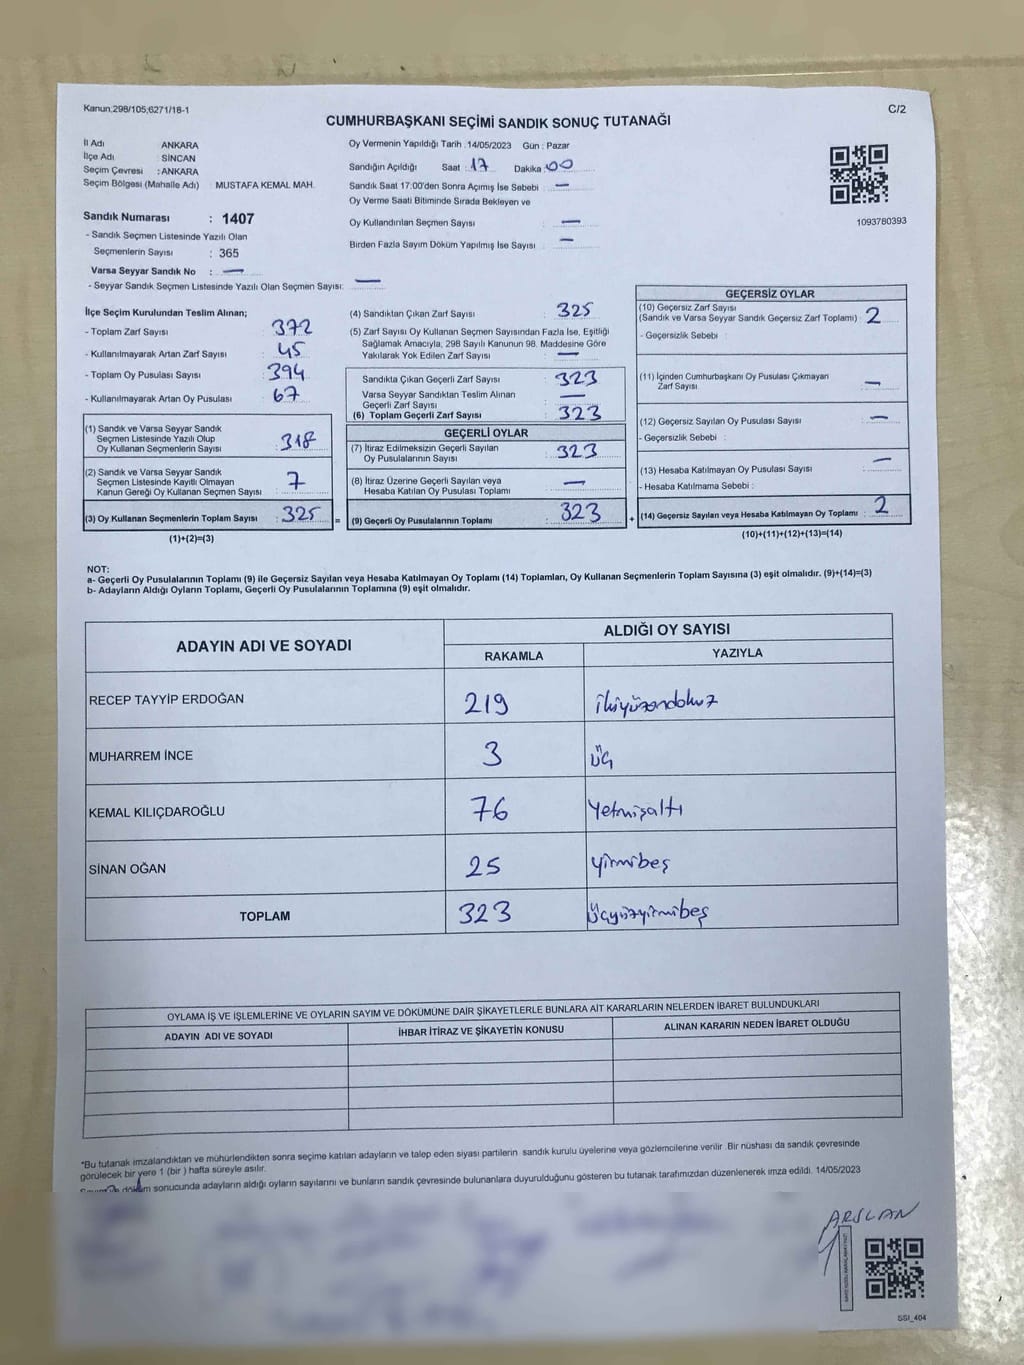 Kanun;298/105,6271/18-1
C/2
CUMHURBAŞKANI SEÇİMİ SANDIK SONUÇ TUTANAĞI
İl Adı ANKARA
İlçe Adı : SİNCAN
Seçim Çevresi : ANKARA
Seçim Bölgesi (Mahalle Adı) : MUSTAFA KEMAL MAH.
Sandık Numarası : 1407
- Sandık Seçmen Listesinde Yazılı Olan
Seçmenlerin Sayısı : 365
Varsa Seyyar Sandık No : —
- Seyyar Sandık Seçmen Listesinde Yazılı Olan Seçmen Sayısı: —
Oy Vermenin Yapıldığı Tarih : 14/05/2023 Gün : Pazar
Sandığın Açıldığı Saat : 17 Dakika : 00
Sandık Saat 17:00'den Sonra Açımış İse Sebebi : —
Oy Verme Saati Bitiminde Sırada Bekleyen ve
Oy Kullandırılan Seçmen Sayısı : —
Birden Fazla Sayım Döküm Yapılmış İse Sayısı : —
1093780393
İlçe Seçim Kurulundan Teslim Alınan;
- Toplam Zarf Sayısı : 372
- Kullanılmayarak Artan Zarf Sayısı : 45
- Toplam Oy Pusulası Sayısı : 394
- Kullanılmayarak Artan Oy Pusulası : 67
(1) Sandık ve Varsa Seyyar Sandık
Seçmen Listesinde Yazılı Olup
Oy Kullanan Seçmenlerin Sayısı : 318
(2) Sandık ve Varsa Seyyar Sandık
Seçmen Listesinde Kayıtlı Olmayan
Kanun Gereği Oy Kullanan Seçmen Sayısı : 7
(3) Oy Kullanan Seçmenlerin Toplam Sayısı : 325
(1)+(2)=(3)
=
(4) Sandıktan Çıkan Zarf Sayısı : 325
(5) Zarf Sayısı Oy Kullanan Seçmen Sayısından Fazla İse, Eşitliği
Sağlamak Amacıyla, 298 Sayılı Kanunun 98. Maddesine Göre
Yakılarak Yok Edilen Zarf Sayısı : —
Sandıkta Çıkan Geçerli Zarf Sayısı : 323
Varsa Seyyar Sandıktan Teslim Alınan
Geçerli Zarf Sayısı : —
(6) Toplam Geçerli Zarf Sayısı : 323
GEÇERLİ OYLAR
(7) İtiraz Edilmeksizin Geçerli Sayılan
Oy Pusulalarının Sayısı : 323
(8) İtiraz Üzerine Geçerli Sayılan veya
Hesaba Katılan Oy Pusulası Toplamı : —
(9) Geçerli Oy Pusulalarının Toplamı : 323
+
GEÇERSİZ OYLAR
(10) Geçersiz Zarf Sayısı
(Sandık ve Varsa Seyyar Sandık Geçersiz Zarf Toplamı) : 2
- Geçersizlik Sebebi :
(11) İçinden Cumhurbaşkanı Oy Pusulası Çıkmayan
Zarf Sayısı : —
(12) Geçersiz Sayılan Oy Pusulası Sayısı : —
- Geçersizlik Sebebi :
(13) Hesaba Katılmayan Oy Pusulası Sayısı : —
- Hesaba Katılmama Sebebi :
(14) Geçersiz Sayılan veya Hesaba Katılmayan Oy Toplamı : 2
(10)+(11)+(12)+(13)=(14)
NOT:
a- Geçerli Oy Pusulalarının Toplamı (9) ile Geçersiz Sayılan veya Hesaba Katılmayan Oy Toplamı (14) Toplamları, Oy Kullanan Seçmenlerin Toplam Sayısına (3) eşit olmalıdır. (9)+(14)=(3)
b- Adayların Aldığı Oyların Toplamı, Geçerli Oy Pusulalarının Toplamına (9) eşit olmalıdır.
ADAYIN ADI VE SOYADI
ALDIĞI OY SAYISI
RAKAMLA YAZIYLA
RECEP TAYYİP ERDOĞAN 219 ikiyüzondokuz
MUHARREM İNCE 3 üç
KEMAL KILIÇDAROĞLU 76 Yetmişaltı
SİNAN OĞAN 25 yirmibeş
TOPLAM 323 Üçyüzyirmibeş
OYLAMA İŞ VE İŞLEMLERİNE VE OYLARIN SAYIM VE DÖKÜMÜNE DAİR ŞİKAYETLERLE BUNLARA AİT KARARLARIN NELERDEN İBARET BULUNDUKLARI
ADAYIN ADI VE SOYADI İHBAR İTİRAZ VE ŞİKAYETİN KONUSU ALINAN KARARIN NEDEN İBARET OLDUĞU
*Bu tutanak imzalandıktan ve mühürlendikten sonra seçime katılan adayların ve talep eden siyasi partilerin sandık kurulu üyelerine veya gözlemcilerine verilir. Bir nüshası da sandık çevresinde
görülecek bir yere 1 (bir ) hafta süreyle asılır.
döküm sonucunda adayların aldığı oyların sayılarını ve bunların sandık çevresinde bulunanlara duyurulduğunu gösteren bu tutanak tarafımızdan düzenlenerek imza edildi. 14/05/2023
ARSLAN
SSI_404